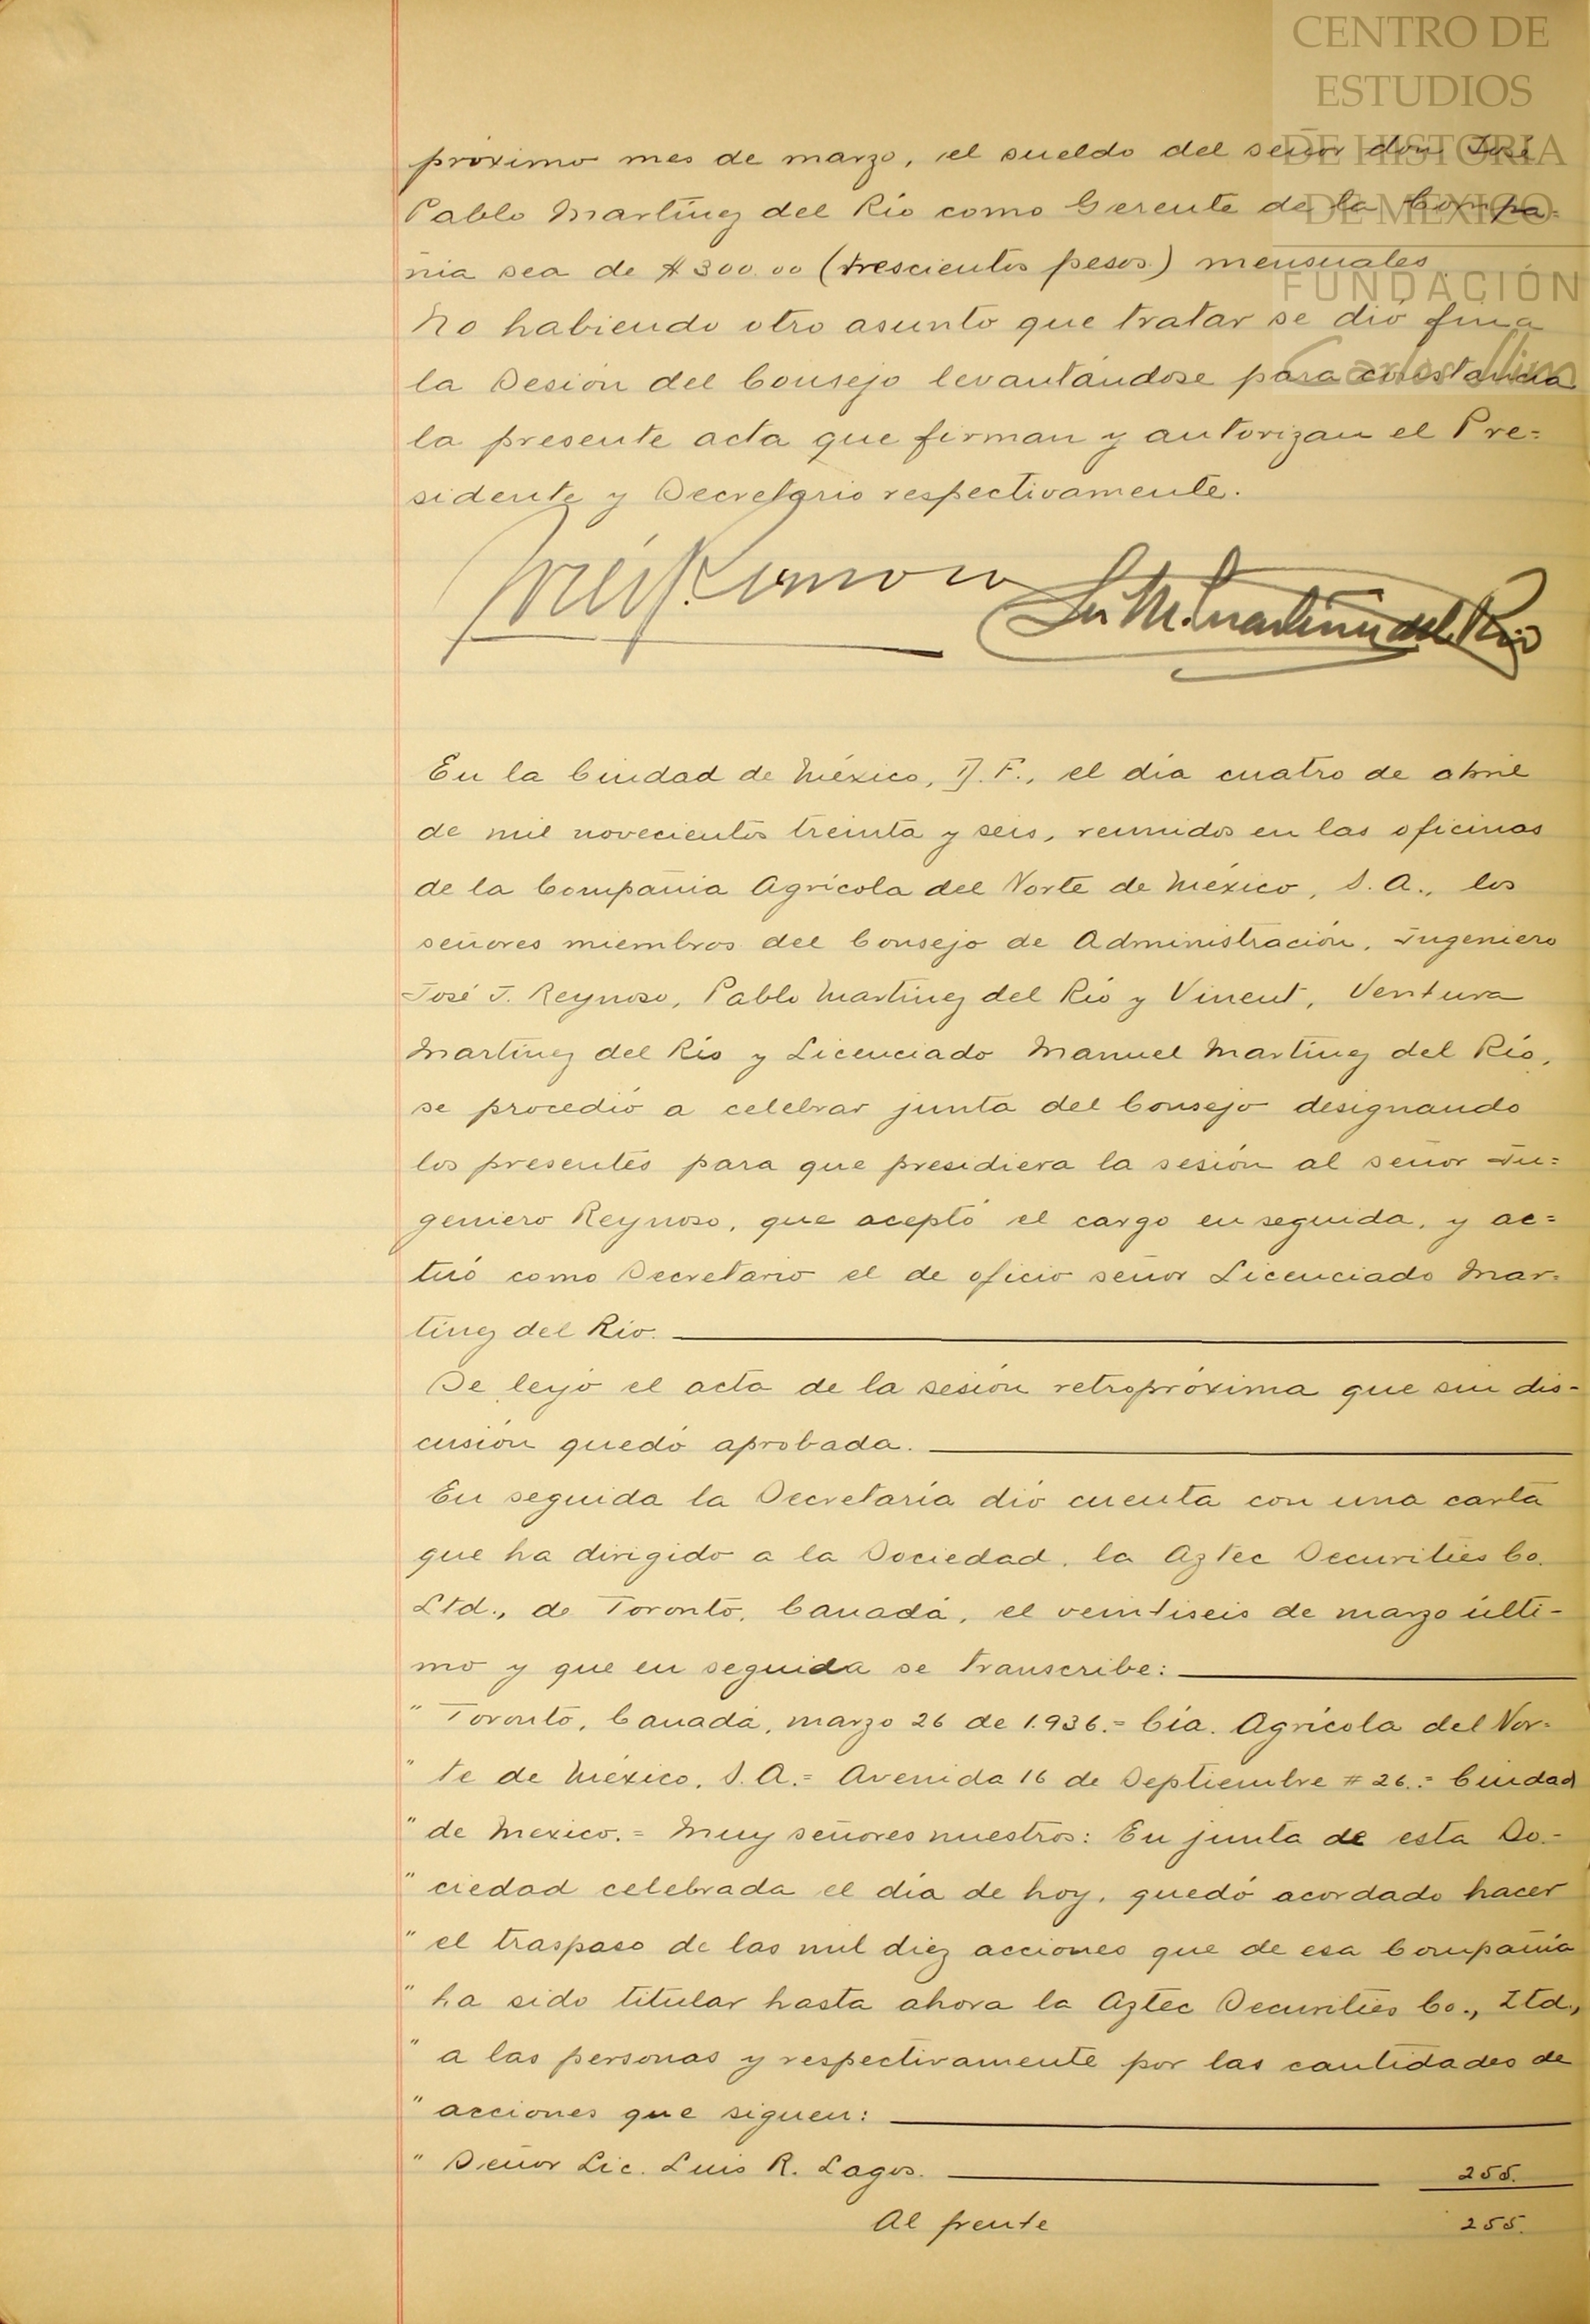 CENTRO DE
ESTUDIOS
DE HISTORIA
DE MEXICO
FUNDACIÓN
Carlos Slim
próximo mes de marzo, el sueldo del señor don José
Pablo Martínez del Río como Gerente de la Compa=
ñia sea de $300.00 (trescientos pesos) mensuales.
No habiendo otro asunto que tratar se dió fin a
la Sesión del Consejo levantándose para constancia
la presente acta que firman y autorizan el Pre=
sidente y Secretario respectivamente.
Martínez del Río
En la Ciudad de México, D.F., el día cuatro de abril
de mil novecientos treinta y seis, reunidos en las oficinas
de la Compañia Agrícola del Norte de México, S.A., los
señores miembros del Consejo de Administración, Ingeniero
José J. Reynoso, Pablo Martínez del Río y Vinent, Ventura
Martínez del Río y Licenciado Manuel Martínez del Río,
se procedió a celebrar junta del Consejo designando
los presentes para que presidiera la sesión al señor In=
geniero Reynoso, que aceptó el cargo en seguida, y ac=
tuó como Secretario el de oficio señor Licenciado Mar=
tínez del Río.
Se leyó el acta de la sesión retropróxima que sin dis-
cusión quedó aprobada.
En seguida la Secretaría dió cuenta con una carta
que ha dirigido a la Sociedad, la Aztec Securities Co.
Ltd., de Toronto, Canadá, el veintiseis de marzo últi-
mo y que en seguida se transcribe:
" Toronto, Canadá, marzo 26 de 1.936.= Cía. Agrícola del Nor=
" te de México, S.A.= Avenida 16 de Septiembre # 26.= Ciudad
" de Mexico.= Muy señores nuestros: En junta de esta So.-
" ciedad celebrada el día de hoy, quedó acordado hacer
" el traspaso de las mil diez acciones que de esa Compañía
" ha sido titular hasta ahora la Aztec Securities Co., Ltd.,
" a las personas y respectivamente por las cantidades de
" acciones que siguen:
" Señor Lic. Luis R. Lagos. 255.
Al frente 255.